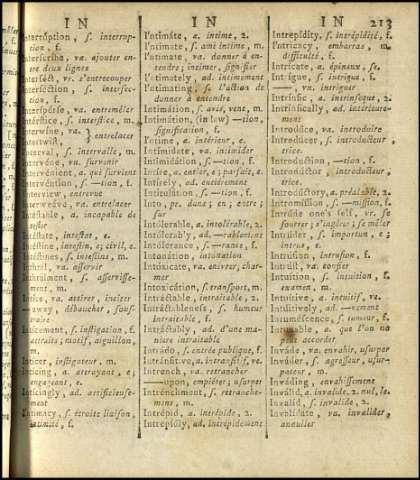 IN
IN
IN 213
Interrúption, ſ. interrup-
tion, f.
ajouter en-
tre deux lignes
vr. s'entrecouper
ſ. interſec-
tion, f.
va. entremêler
ſ. interſtice, m.
entrelacer
Intertwiſt,
ſ. intervalle, m.
vn. ſurvenir
a. qui ſurvient
ſ. —tion, f.
Interview, entrevue
va. entrelacer
a. incapable de
teſter
Inteſtate, inteſtat, e.
Inteſtine, inteſtin, e; civil, e.
Inteſtines, ſ. inteſtins, m.
va. aſſervir
ſ. aſſerviſſe-
ment, m.
va. attirer, inciter
—away, débaucher, ſouſ-
traire
ſ. inſtigation, f.
attraits; motif, aiguillon,
m.
ſ. inſtigateur, m.
a. attrayant, e;
engageant, e.
ad. artificieuſe-
ment
Intimacy, ſ. étroite liaiſon,
intimité, f.
I'ntimate, a. intime, 2.
I'ntimate, ſ. ami intime, m.
I'ntimate, va. donner à en-
tendre; intimer, ſignifier
I'ntimately, ad. intimement
I'ntimating, ſ. l'action de
donner à entendre
Intimátion, ſ. avis, vent, m.
Intimátion, (in law) —tion,
ſignification, f.
I'ntime, a. intérieur, e.
Intimidate, va. intimider
Intimidátion, ſ. —tion, f.
Intíre, a. entier, e; parfait, e.
Intírely, ad. entièrement
ſ. —tion, f.
I'nto, pr. dans; en; entre;
ſur
Intólerable, a. intolérable, 2.
Intólerably, ad. —rablement
Intólerance, ſ. —rance, f.
Intonátion, intonation
Intóxicate, va. enivrer, char-
mer
Intoxicátion, ſ. tranſport, m.
Intráctable, intraitable, 2.
Intráctableneſs, ſ. humeur
intraitable, f.
Intráctably, ad. d'une ma-
niere intraitable
Intrádo, ſ. entrée publique, f.
Intránſitive, a. intranſitif, ve.
Intrench, va. retrancher
—upon, empiéter; uſurper
Intrénchment, ſ. retranche-
mens, m.
Intrépid, a. intrépide, 2.
Intrépidly, ad. intrépidement
Intrepídity, ſ. intrépidité, f.
I'ntricacy, embarras, m.
difficulté, f.
I'ntricate, a. épineux, ſe.
Intrígue, ſ. intrigue, f.
——, vn. intriguer
Intrínſic, a. intrinſeque, 2.
Intrínſically, ad. intérieure-
ment
Introdúce, va. introduire
Introdúcer, ſ. introducteur,
trice.
Introdúction, —tion, f.
Introdúctor, introducteur,
trice.
Introdúctory, a. préalable, 2.
Intromíſſion, ſ. —miſſion, f.
Intrúde one's ſelf, vr. ſe
fourrer; s'ingérer; ſe mêler
Intrúder, ſ. importun, e;
intrus, e.
Intrúſion, intruſion, f.
Intrúſt, va. confier
Intuítion, ſ. intuition, f.
examen, m.
Intúitive, a. intuitif, ve.
Intúitively, ad. —vement
Intuméſcence, ſ. tumeur, f.
a. que l'on ne
peut accorder
Inváde, va. envahir, uſurper
Inváder, ſ. agreſſeur, uſur-
pateur, m.
Inváding, envahiſſement
Inválid, a. invalide, 2. nul, le.
Invalíd, ſ. invalide, 2.
Inválidate, va. invalider,
annuller